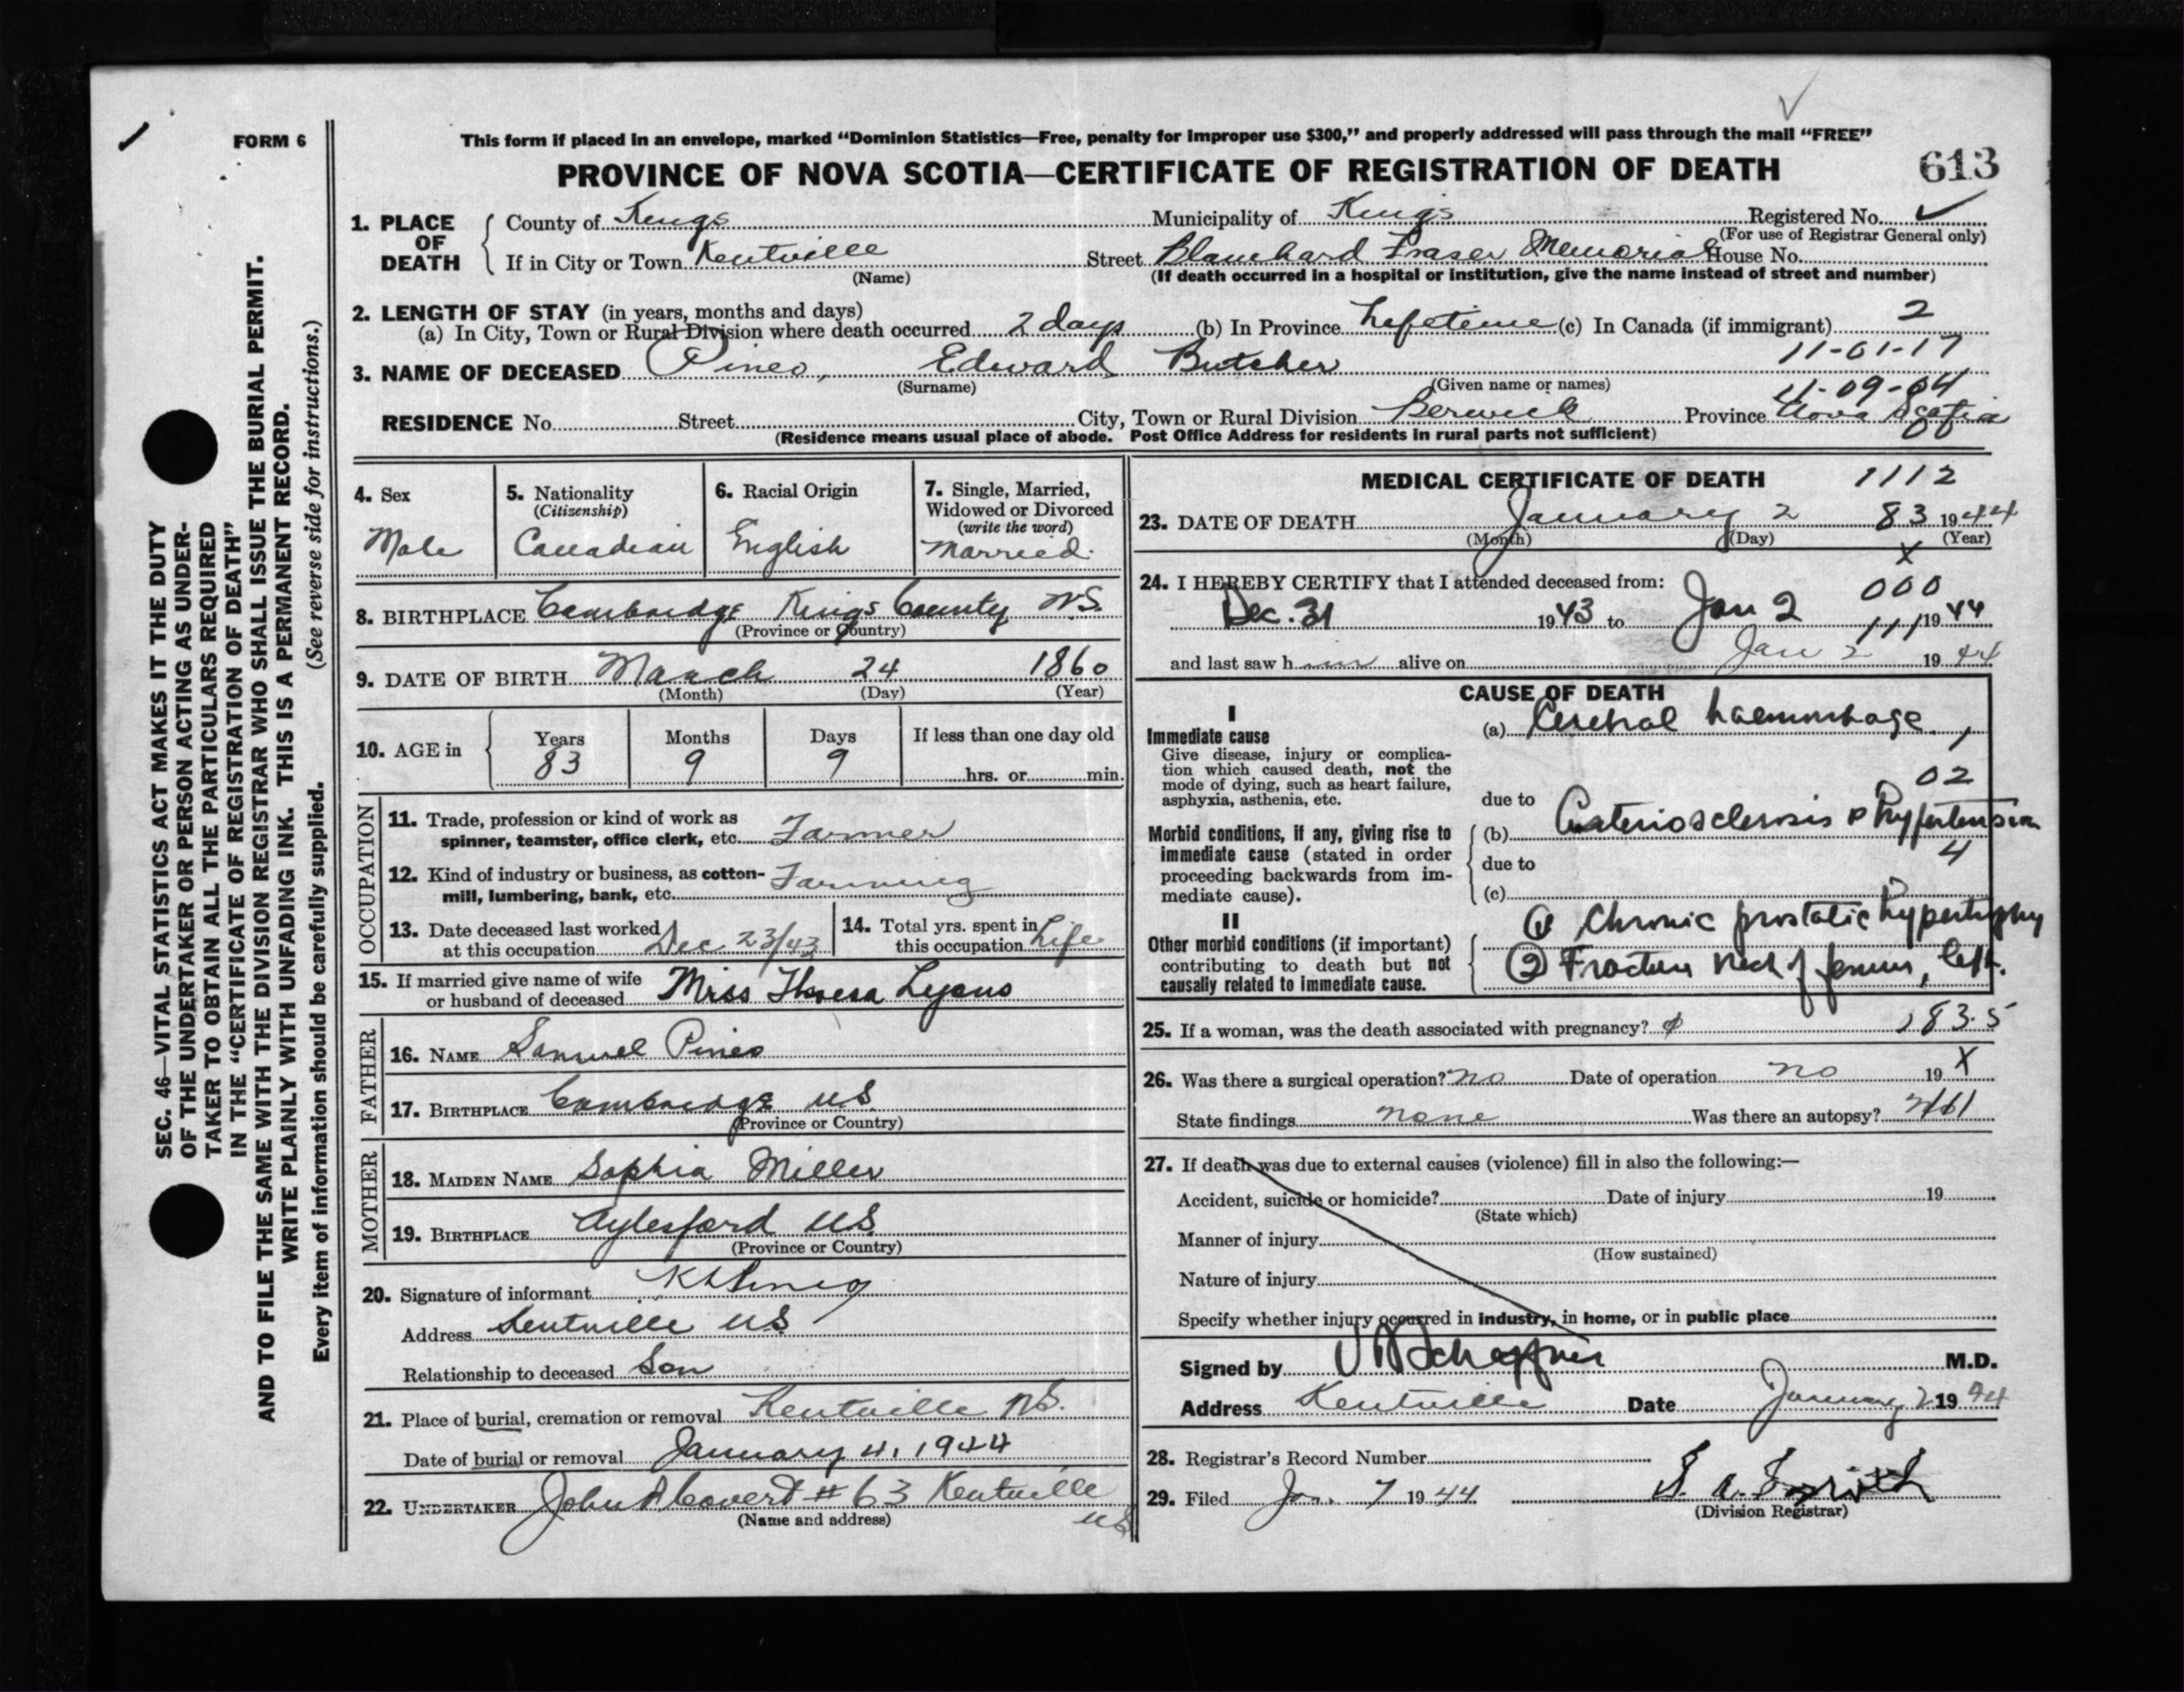 This form if placed in an envelope, marked “Dominion Statistics—Free, penalty for improper use $300,” and properly addressed will pass through the mail “FREE”
FORM 6
PROVINCE OF NOVA SCOTIA—CERTIFICATE OF REGISTRATION OF DEATH
613
SEC. 46—VITAL STATISTICS ACT MAKES IT THE DUTY
OF THE UNDERTAKER OR PERSON ACTING AS UNDER-
TAKER TO OBTAIN ALL THE PARTICULARS REQUIRED
IN THE “CERTIFICATE OF REGISTRATION OF DEATH”
AND TO FILE THE SAME WITH THE DIVISION REGISTRAR WHO SHALL ISSUE THE BURIAL PERMIT.
WRITE PLAINLY WITH UNFADING INK. THIS IS A PERMANENT RECORD.
Every item of information should be carefully supplied. (See reverse side for instructions.)
1. PLACE OF DEATH
County of Kings Municipality of Kings Registered No. ✓
(For use of Registrar General only)
If in City or Town Kentville Street Blanchard Fraser Memorial House No.
(Name) (If death occurred in a hospital or institution, give the name instead of street and number)
2. LENGTH OF STAY (in years, months and days)
(a) In City, Town or Rural Division where death occurred 2 days (b) In Province Lifetime (c) In Canada (if immigrant) 2
11-01-17
3. NAME OF DECEASED Pineo, Edward Butcher
(Surname) (Given name or names)
11-09-04
RESIDENCE No. Street City, Town or Rural Division Berwick Province Nova Scotia
(Residence means usual place of abode. Post Office Address for residents in rural parts not sufficient)
4. Sex
Male
5. Nationality
(Citizenship)
Canadian
6. Racial Origin
English
7. Single, Married,
Widowed or Divorced
(write the word)
Married.
8. BIRTHPLACE Cambridge Kings County N.S.
(Province or Country)
9. DATE OF BIRTH March 24 1860
(Month) (Day) (Year)
10. AGE in
Years Months Days If less than one day old
83 9 9 hrs. or min.
OCCUPATION
11. Trade, profession or kind of work as
spinner, teamster, office clerk, etc. Farmer
12. Kind of industry or business, as cotton-
mill, lumbering, bank, etc. Farming
13. Date deceased last worked
at this occupation Dec 23/43
14. Total yrs. spent in
this occupation Life
15. If married give name of wife
or husband of deceased Miss Theresa Lyons
FATHER
16. NAME Samuel Pineo
17. BIRTHPLACE Cambridge N.S.
(Province or Country)
MOTHER
18. MAIDEN NAME Sophia Miller
19. BIRTHPLACE Aylesford N.S.
(Province or Country)
20. Signature of informant Pineo
Address Kentville N.S.
Relationship to deceased Son
21. Place of burial, cremation or removal Kentville N.S.
Date of burial or removal January 4, 1944
22. UNDERTAKER John A Covert # 63 Kentville
N.S.
(Name and address)
MEDICAL CERTIFICATE OF DEATH 1112
23. DATE OF DEATH January 2 83 1944
(Month) (Day) (Year)
X
24. I HEREBY CERTIFY that I attended deceased from: 000
Dec. 31 1943 to Jan 2 111 1944
and last saw him alive on Jan 2 1944
CAUSE OF DEATH
I
Immediate cause
Give disease, injury or complica-
tion which caused death, not the
mode of dying, such as heart failure,
asphyxia, asthenia, etc.
(a) Cerebral haemorrhage
02
due to
Morbid conditions, if any, giving rise to
immediate cause (stated in order
proceeding backwards from im-
mediate cause).
(b) Arteriosclerosis & hypertension
4
due to
(c)
II
Other morbid conditions (if important)
contributing to death but not
causally related to immediate cause.
① Chronic prostatic hypertrophy
② Fracture neck of femur, left.
25. If a woman, was the death associated with pregnancy? 183.5
26. Was there a surgical operation? no Date of operation no 19 X
State findings none Was there an autopsy?
27. If death was due to external causes (violence) fill in also the following:—
Accident, suicide or homicide? Date of injury 19
(State which)
Manner of injury
(How sustained)
Nature of injury
Specify whether injury occurred in industry, in home, or in public place
Signed by Schaffner M.D.
Address Kentville Date January 2 1944
28. Registrar's Record Number
29. Filed Jan. 7 1944
(Division Registrar)